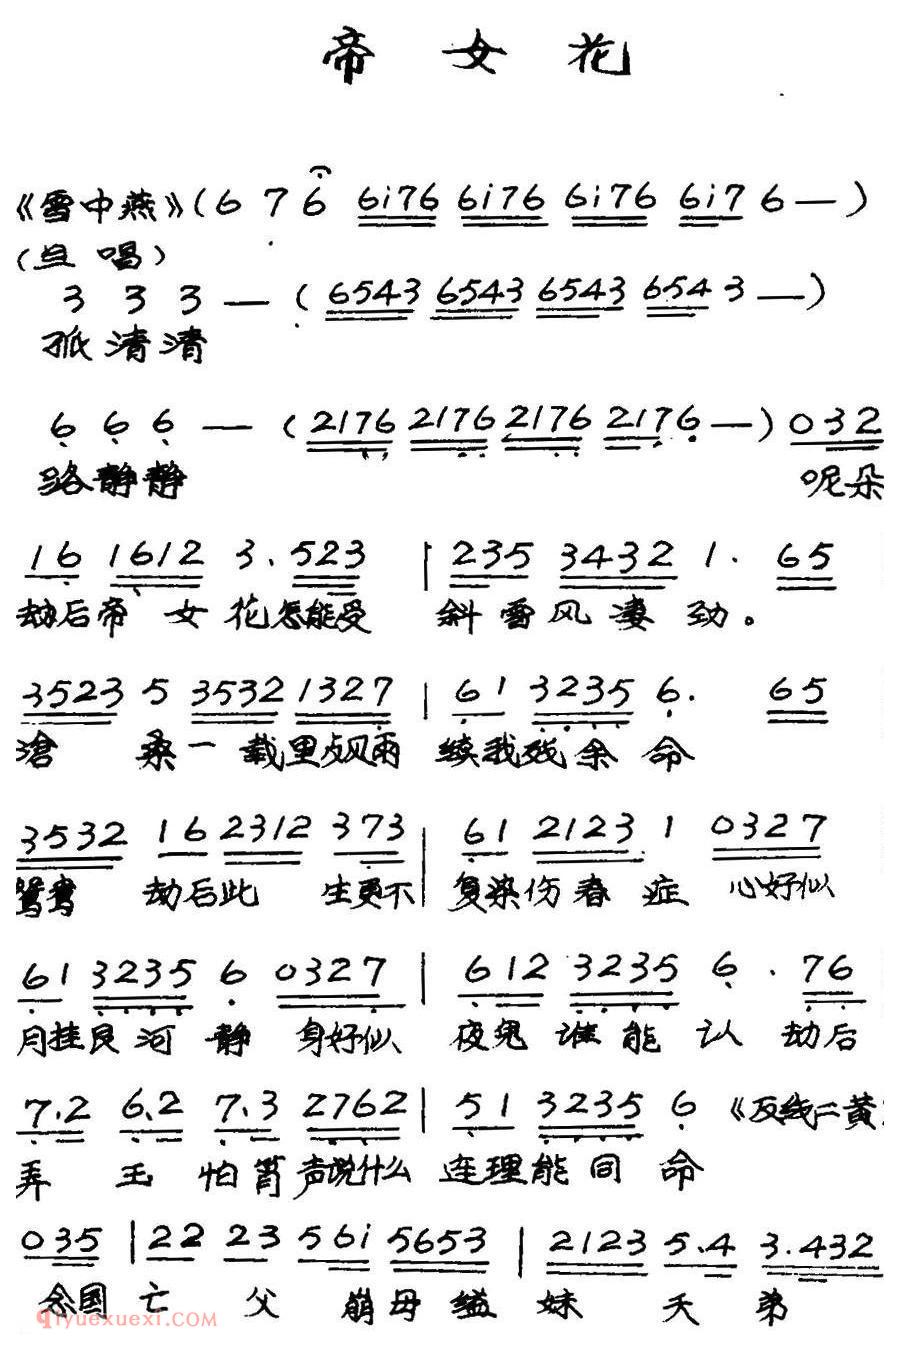 帝女花
《雪中燕》(6 7 6 6i76 6i76 6i76 6i7 6 —)
(旦唱)
3 3 3 — (6543 6543 6543 654 3 —)
孤清清
6 6 6 — (2176 2176 2176 2176 —) 032
路静静 呢朵
16 1612 3. 523 | 235 3432 1. 65
劫后帝女花怎能受 斜雪风凄劲。
3523 5 3532 1327 | 61 3235 6. 65
沧桑一载里风雨 续我残余命
3532 16 2312 373 | 61 2123 1 0327
鸳鸯劫后此生更不 复染伤春症 心好似
61 3235 6 0327 | 612 3235 6. 76
月挂良河静 身好似 夜鬼谁能认 劫后
7.2 6.2 7.3 2762 | 51 3235 6 《反线二黄
弄玉怕箫声说什么 连理能同命
035 | 22 23 56i 5653 | 2123 5.4 3.432
念国亡父崩母缢妹夭弟
qiyuexuexi.com